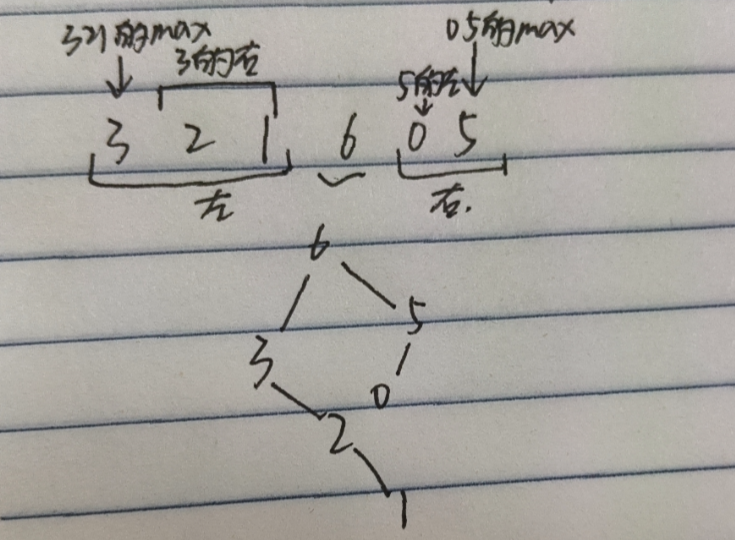 321的max
05的max
3的右
5的左
3 2 1 6 0 5
左
右.
6
3 5
0
2
1